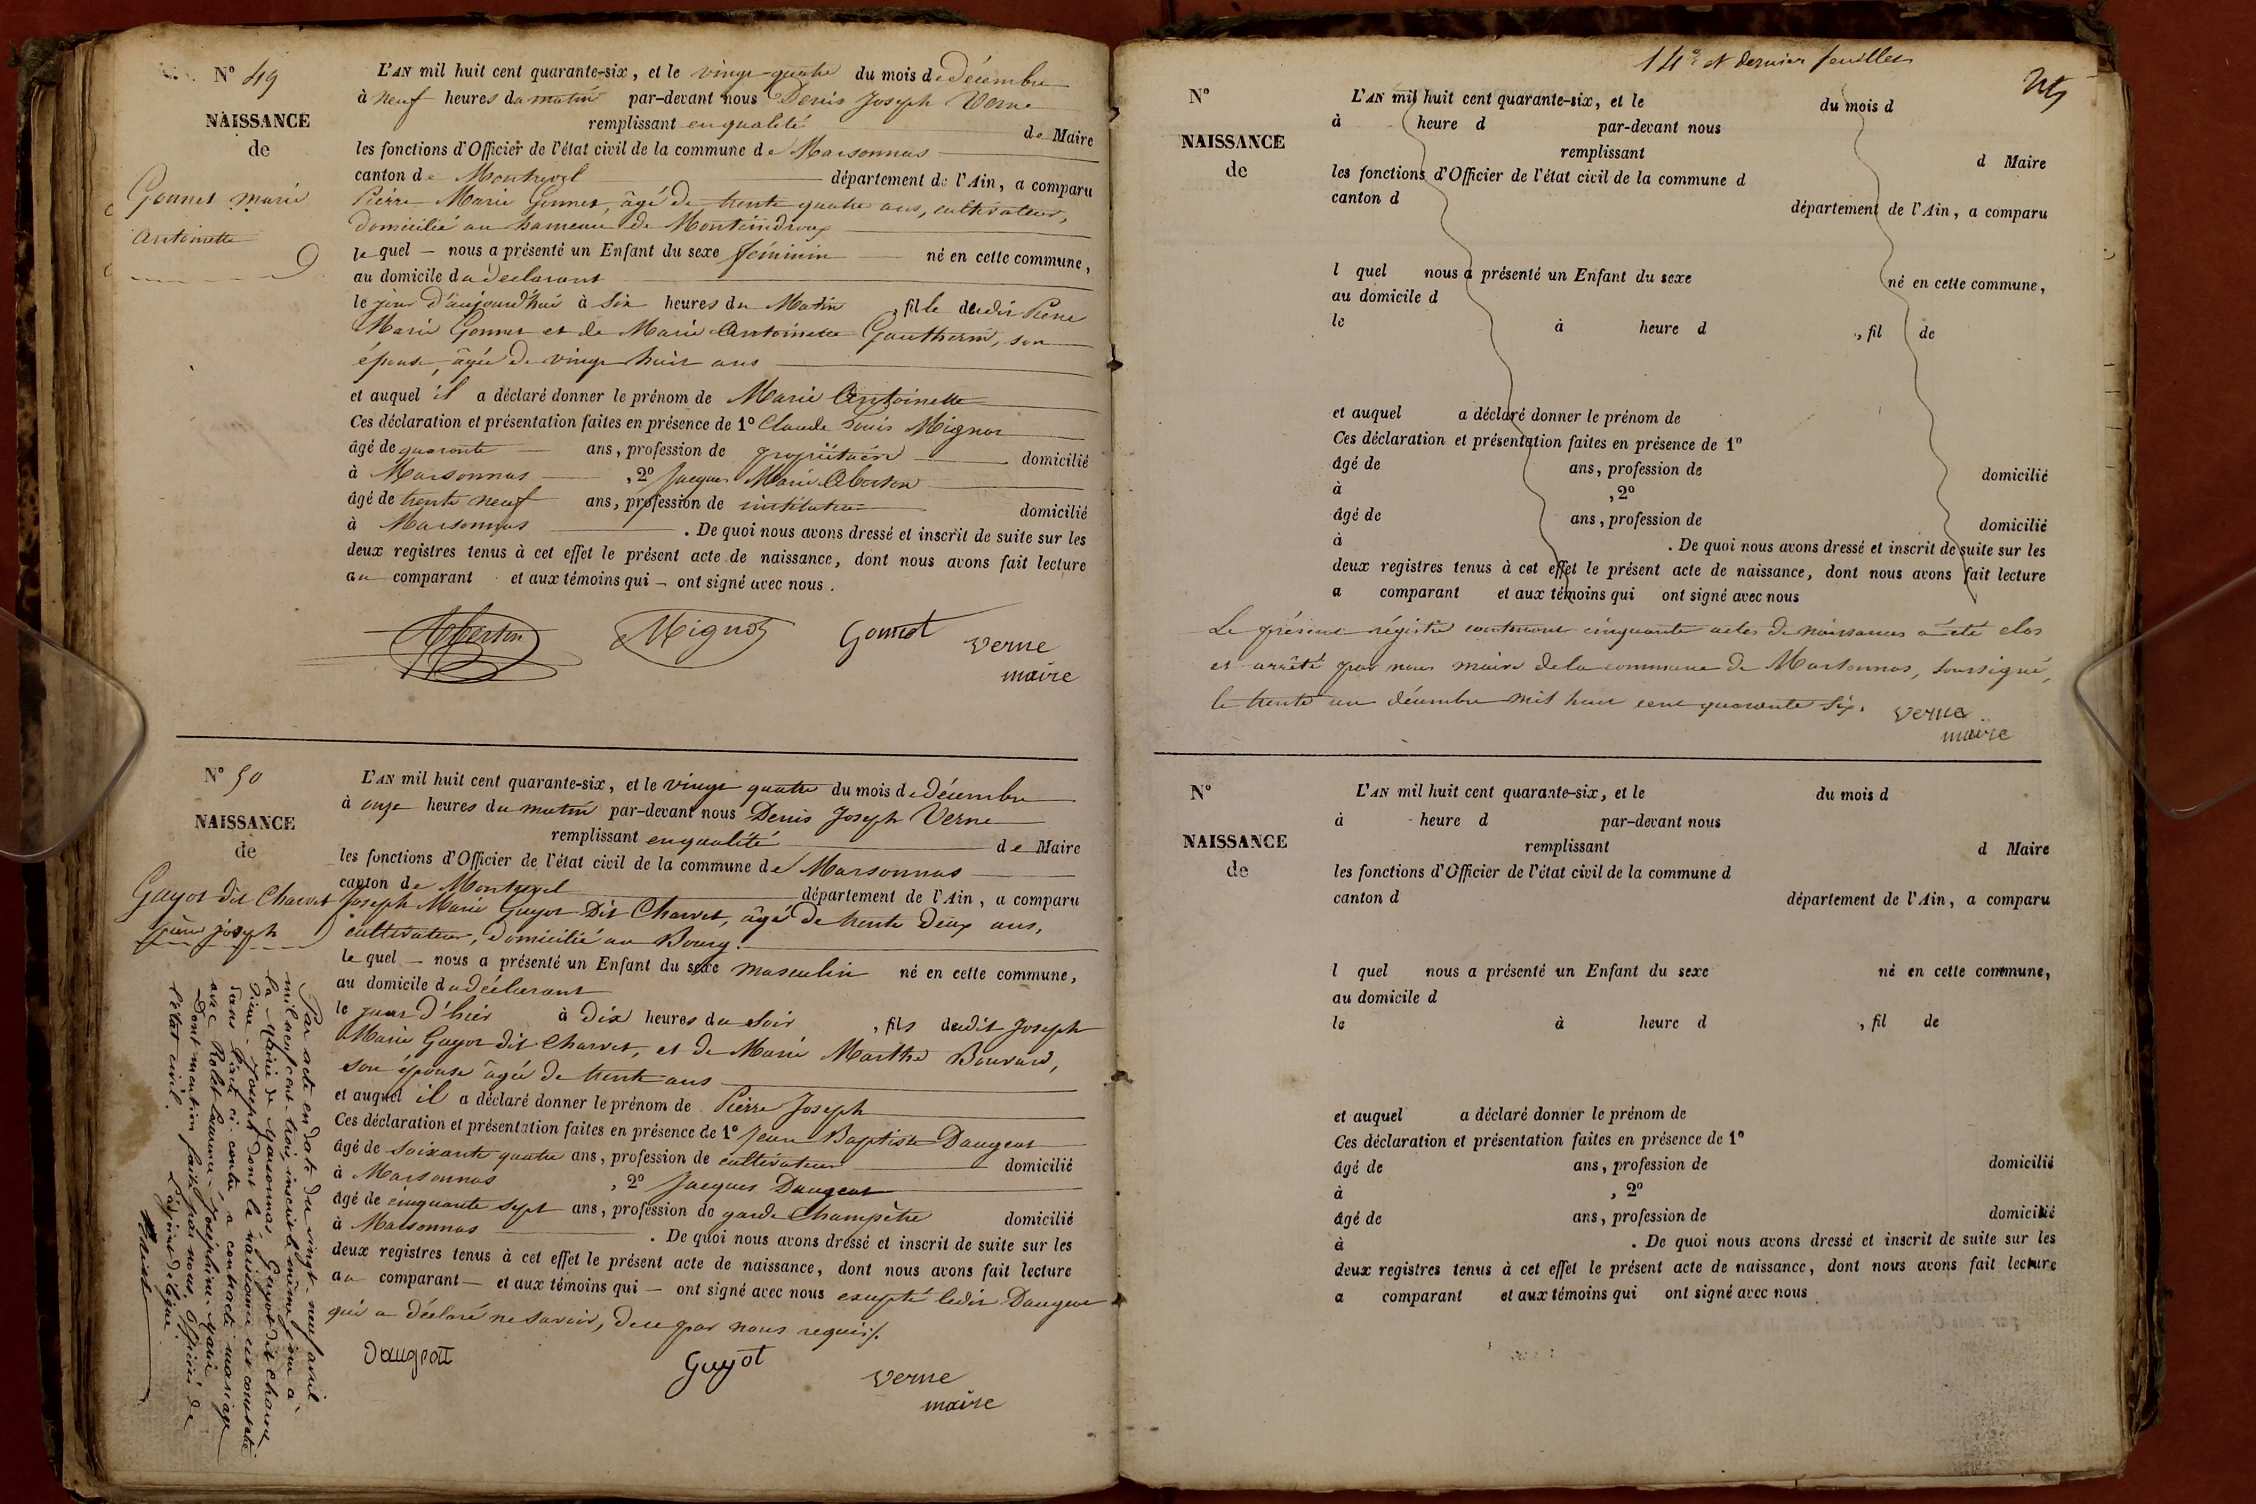 N° 49
NAISSANCE
de
Gonnet marie
antoinette
L'AN mil huit cent quarante-six, et le vingt-quatre du mois de décembre
à neuf heures du matin par-devant nous Denis Joseph Verne
remplissant en qualité de Maire
les fonctions d'Officier de l'état civil de la commune de Marsonnas
canton de Montrevel département de l'Ain, a comparu
Pierre Marie Gonnet, âgé de trente quatre ans, cultivateur,
domicilié au hameau de
le quel – nous a présenté un Enfant du sexe féminin né en cette commune,
au domicile du déclarant
le jour d'aujourd'hui à six heures du Matin, fille dudit Pierre
Marie Gonnet et de Marie Antoinette son
épouse, âgée de vingt huit ans
et auquel il a déclaré donner le prénom de Marie Antoinette
Ces déclaration et présentation faites en présence de 1° Claude Louis Mignot
âgé de quarante ans, profession de propriétaire domicilié
à Marsonnas, 2° Jacques Marie
âgé de trente neuf ans, profession de instituteur domicilié
à Marsonnas. De quoi nous avons dressé et inscrit de suite sur les
deux registres tenus à cet effet le présent acte de naissance, dont nous avons fait lecture
au comparant et aux témoins qui – ont signé avec nous.
Mignot Gonnet Verne
maire
N° 50
NAISSANCE
de
Guyot dit Charvet
pierre joseph
L'AN mil huit cent quarante-six, et le vingt quatre du mois de décembre
à onze heures du matin par-devant nous Denis Joseph Verne
remplissant en qualité de Maire
les fonctions d'Officier de l'état civil de la commune de Marsonnas
canton de Montrevel département de l'Ain, a comparu
Joseph Marie Guyot Dit Charvet, âgé de trente deux ans,
cultivateur, domicilié au Bourg.
le quel – nous a présenté un Enfant du sexe masculin né en cette commune,
au domicile du déclarant
le jour d'hier à dix heures du soir, fils dudit Joseph
Marie Guyot dit Charvet, et de Marie Marthe Bouvard,
son épouse âgée de trente ans
et auquel il a déclaré donner le prénom de Pierre Joseph
Ces déclaration et présentation faites en présence de 1° Jean Baptiste Daugeat
âgé de soixante quatre ans, profession de cultivateur domicilié
à Marsonnas, 2° Jacques Daugeat
âgé de cinquante sept ans, profession de garde Champêtre domicilié
à Marsonnas. De quoi nous avons dressé et inscrit de suite sur les
deux registres tenus à cet effet le présent acte de naissance, dont nous avons fait lecture
au comparant – et aux témoins qui – ont signé avec nous excepté ledit Daugeat
qui a déclaré ne savoir, de ce par nous requis.
Guyot Verne
maire
Par acte en date du vingt-neuf avril
mil neuf cent trois, inscrit le même jour à
la Mairie de Marsonnas, Guyot dit Charvet
Pierre-Joseph dont la naissance est constatée
dans l'acte ci-contre, a contracté mariage
avec Rolet Laurence-Joséphine-Marie
Dont mention faite par nous, officier de
l'état civil.
L'adjoint délégué
14e et dernier feuillet
N°
NAISSANCE
de
L'AN mil huit cent quarante-six, et le du mois d
à heure d par-devant nous
remplissant d Maire
les fonctions d'Officier de l'état civil de la commune d
canton d département de l'Ain, a comparu
l quel nous a présenté un Enfant du sexe né en cette commune,
au domicile d
le à heure d , fil de
et auquel a déclaré donner le prénom de
Ces déclaration et présentation faites en présence de 1°
âgé de ans, profession de domicilié
à , 2°
âgé de ans, profession de domicilié
à . De quoi nous avons dressé et inscrit de suite sur les
deux registres tenus à cet effet le présent acte de naissance, dont nous avons fait lecture
a comparant et aux témoins qui ont signé avec nous
Le présent registre contenant cinquante actes de naissances a été clos
et arrêté par nous maire de la commune de Marsonnas, soussigné,
le trente un décembre mil huit cent quarante six. Verne
maire
N°
NAISSANCE
de
L'AN mil huit cent quarante-six, et le du mois d
à heure d par-devant nous
remplissant d Maire
les fonctions d'Officier de l'état civil de la commune d
canton d département de l'Ain, a comparu
l quel nous a présenté un Enfant du sexe né en cette commune,
au domicile d
le à heure d , fil de
et auquel a déclaré donner le prénom de
Ces déclaration et présentation faites en présence de 1°
âgé de ans, profession de domicilié
à , 2°
âgé de ans, profession de domicilié
à . De quoi nous avons dressé et inscrit de suite sur les
deux registres tenus à cet effet le présent acte de naissance, dont nous avons fait lecture
a comparant et aux témoins qui ont signé avec nous